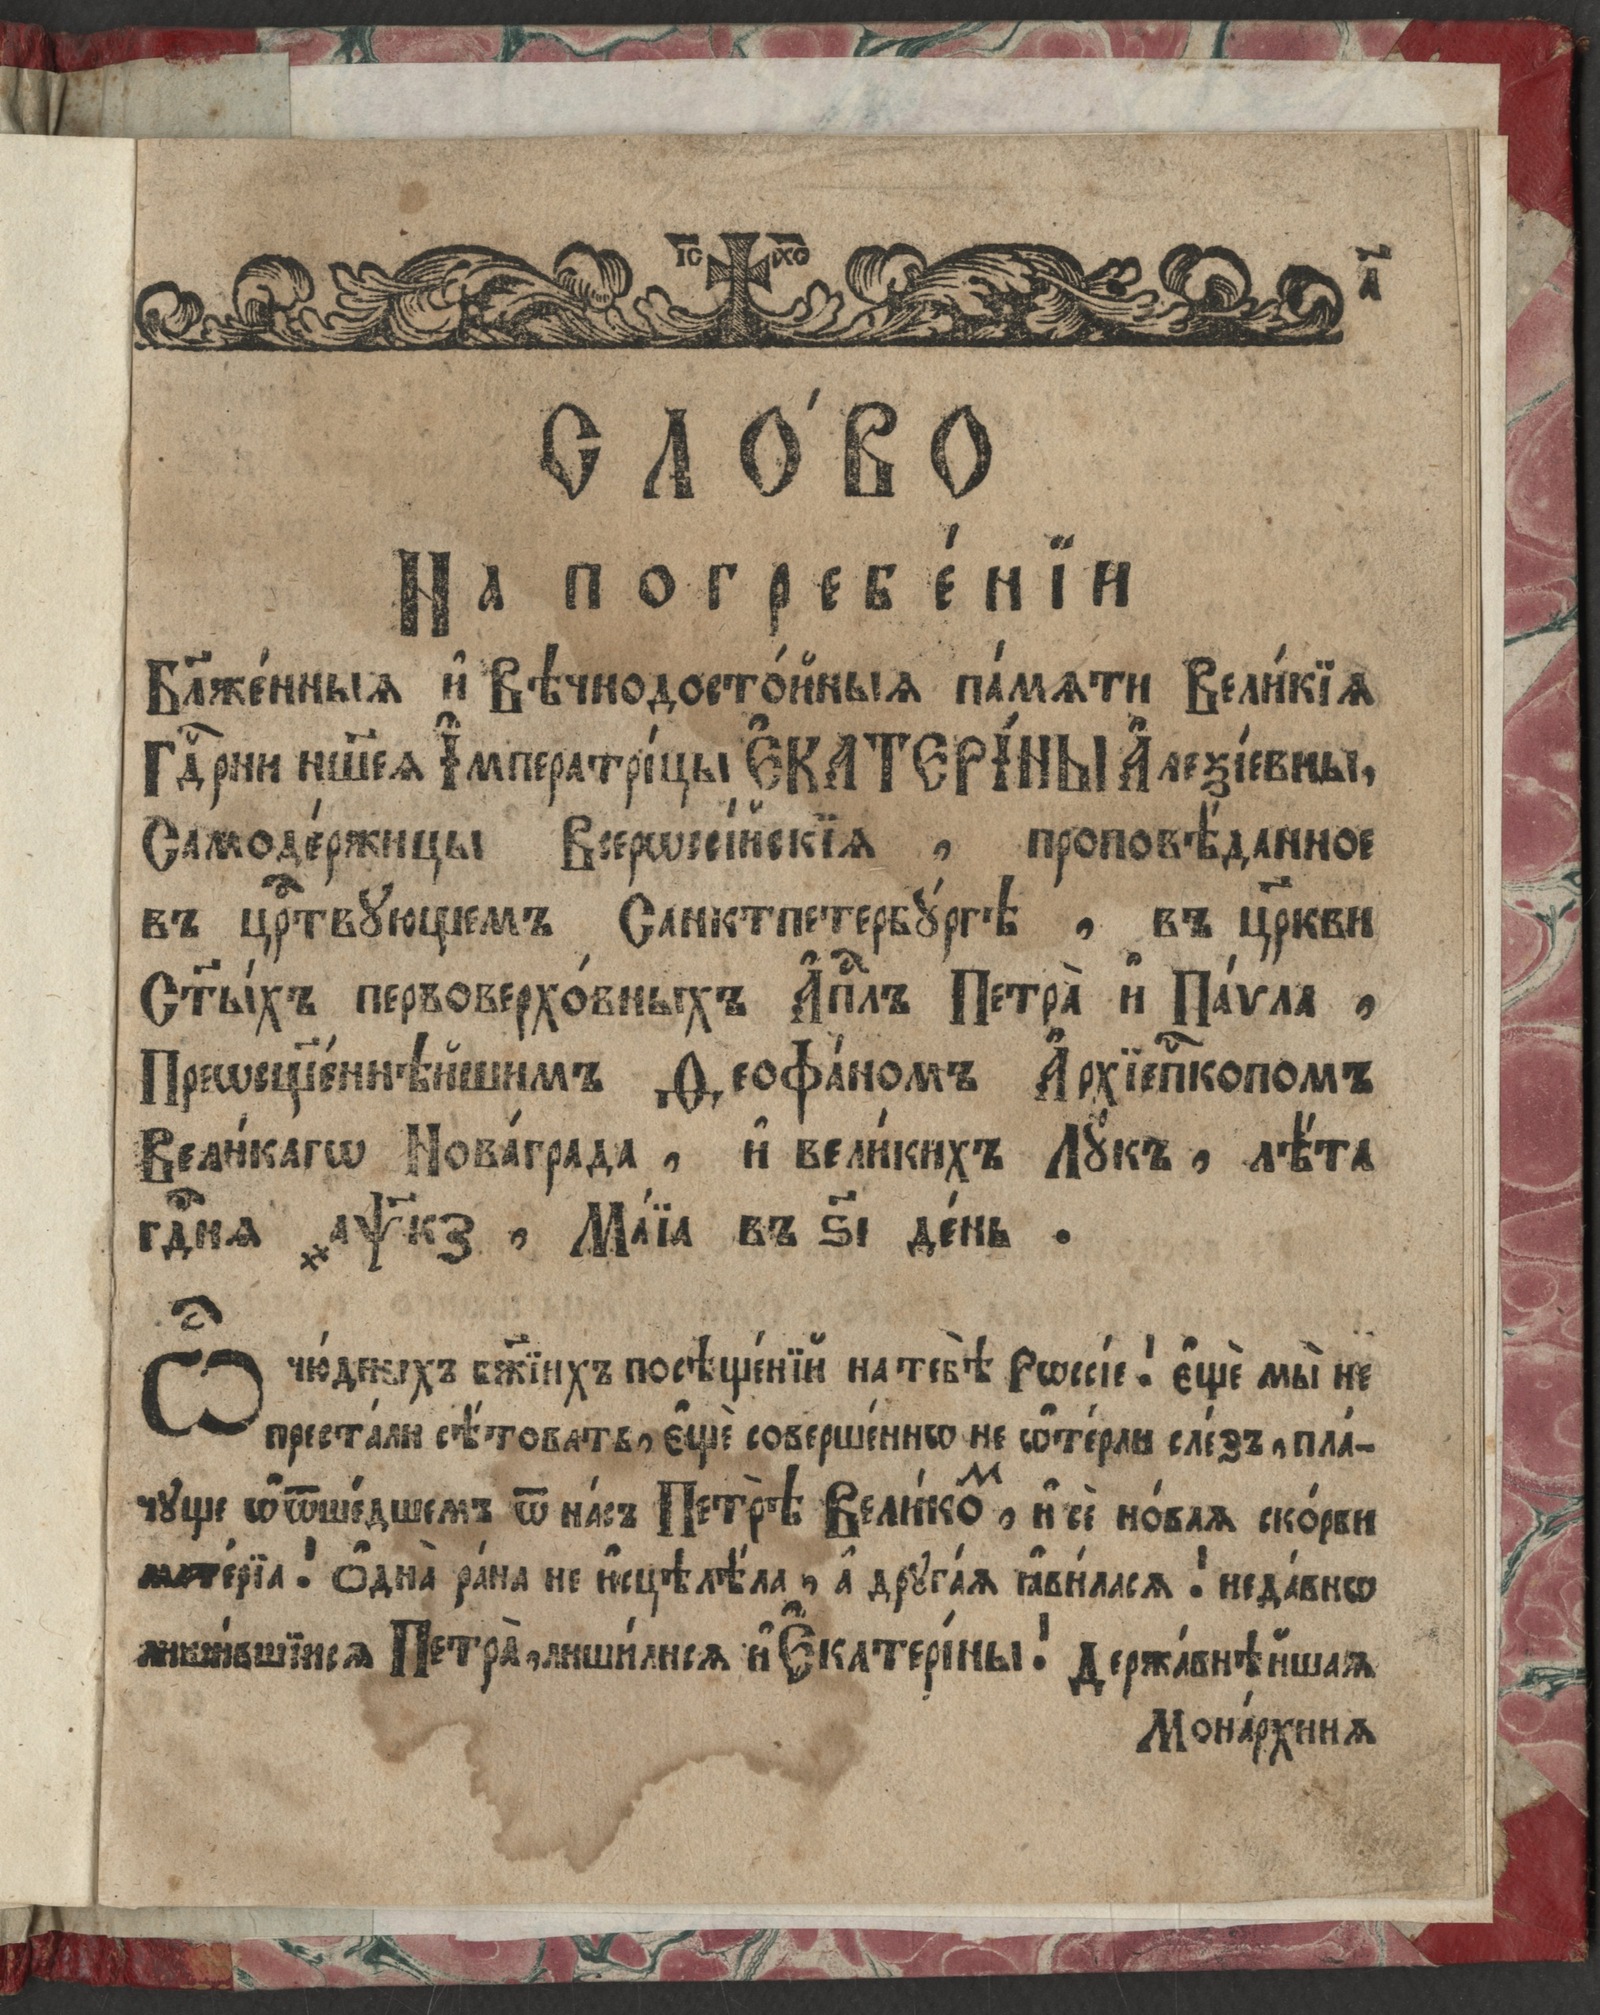 І҃С Х҃С
а҃
СЛО́ВО
На погребе́нїи
Бл҃же́нныѧ и҆ Вѣчнодосто́йныѧ па́мѧти Вели́кїѧ
Гдⷭ҇рни нш҃еѧ І҆мператрі́цы Є҆КАТЕРІ́НЫ А҆леѯі́евны,
Самоде́ржицы Всерѡссі́йскїѧ , проповѣ́данное
въ црⷭ҇твꙋющемъ Санктпетербꙋ́ргѣ , въ цр҃кви
Ст҃ы́хъ первоверхо́вныхъ А҆пⷭ҇лъ Петра̀ и҆ Па́ѵла ,
Преѡсщ҃е́ннѣйшимъ Ѳеофа́номъ А҆рхїепⷭ҇копомъ
Вели́кагѡ Нова́града , и҆ вели́кихъ Лꙋ́къ , лѣ́та
гдⷭ҇нѧ ҂аѱ҃кз , Ма́їа въ ѕ҃і де́нь .
Ѽ чю́дныхъ бж҃їихъ посѣще́нїй на тебѣ̀ Рѡссі́е ! є҆щѐ мы̀ не
преста́ли сѣ́товать , є҆щѐ соверше́ннѡ не ѡ҆те́рли сле́зъ , пла́-
чꙋще ѡ҆ ѿше́дшемъ ѿ на́съ Петрѣ̀ Вели́комⷨ , и҆ сѐ но́ваѧ ско́рби
мате́рїа ! Ѻ҆дна̀ ра́на не и҆сцѣлѣ́ла , а҆ дрꙋга́ѧ ꙗ҆ви́ласѧ ! неда́внѡ
лиши́вшїисѧ Петра̀ , лиши́лисѧ и҆ Є҆катері́ны ! Держа́внѣйшаѧ
Мона́рхинѧ